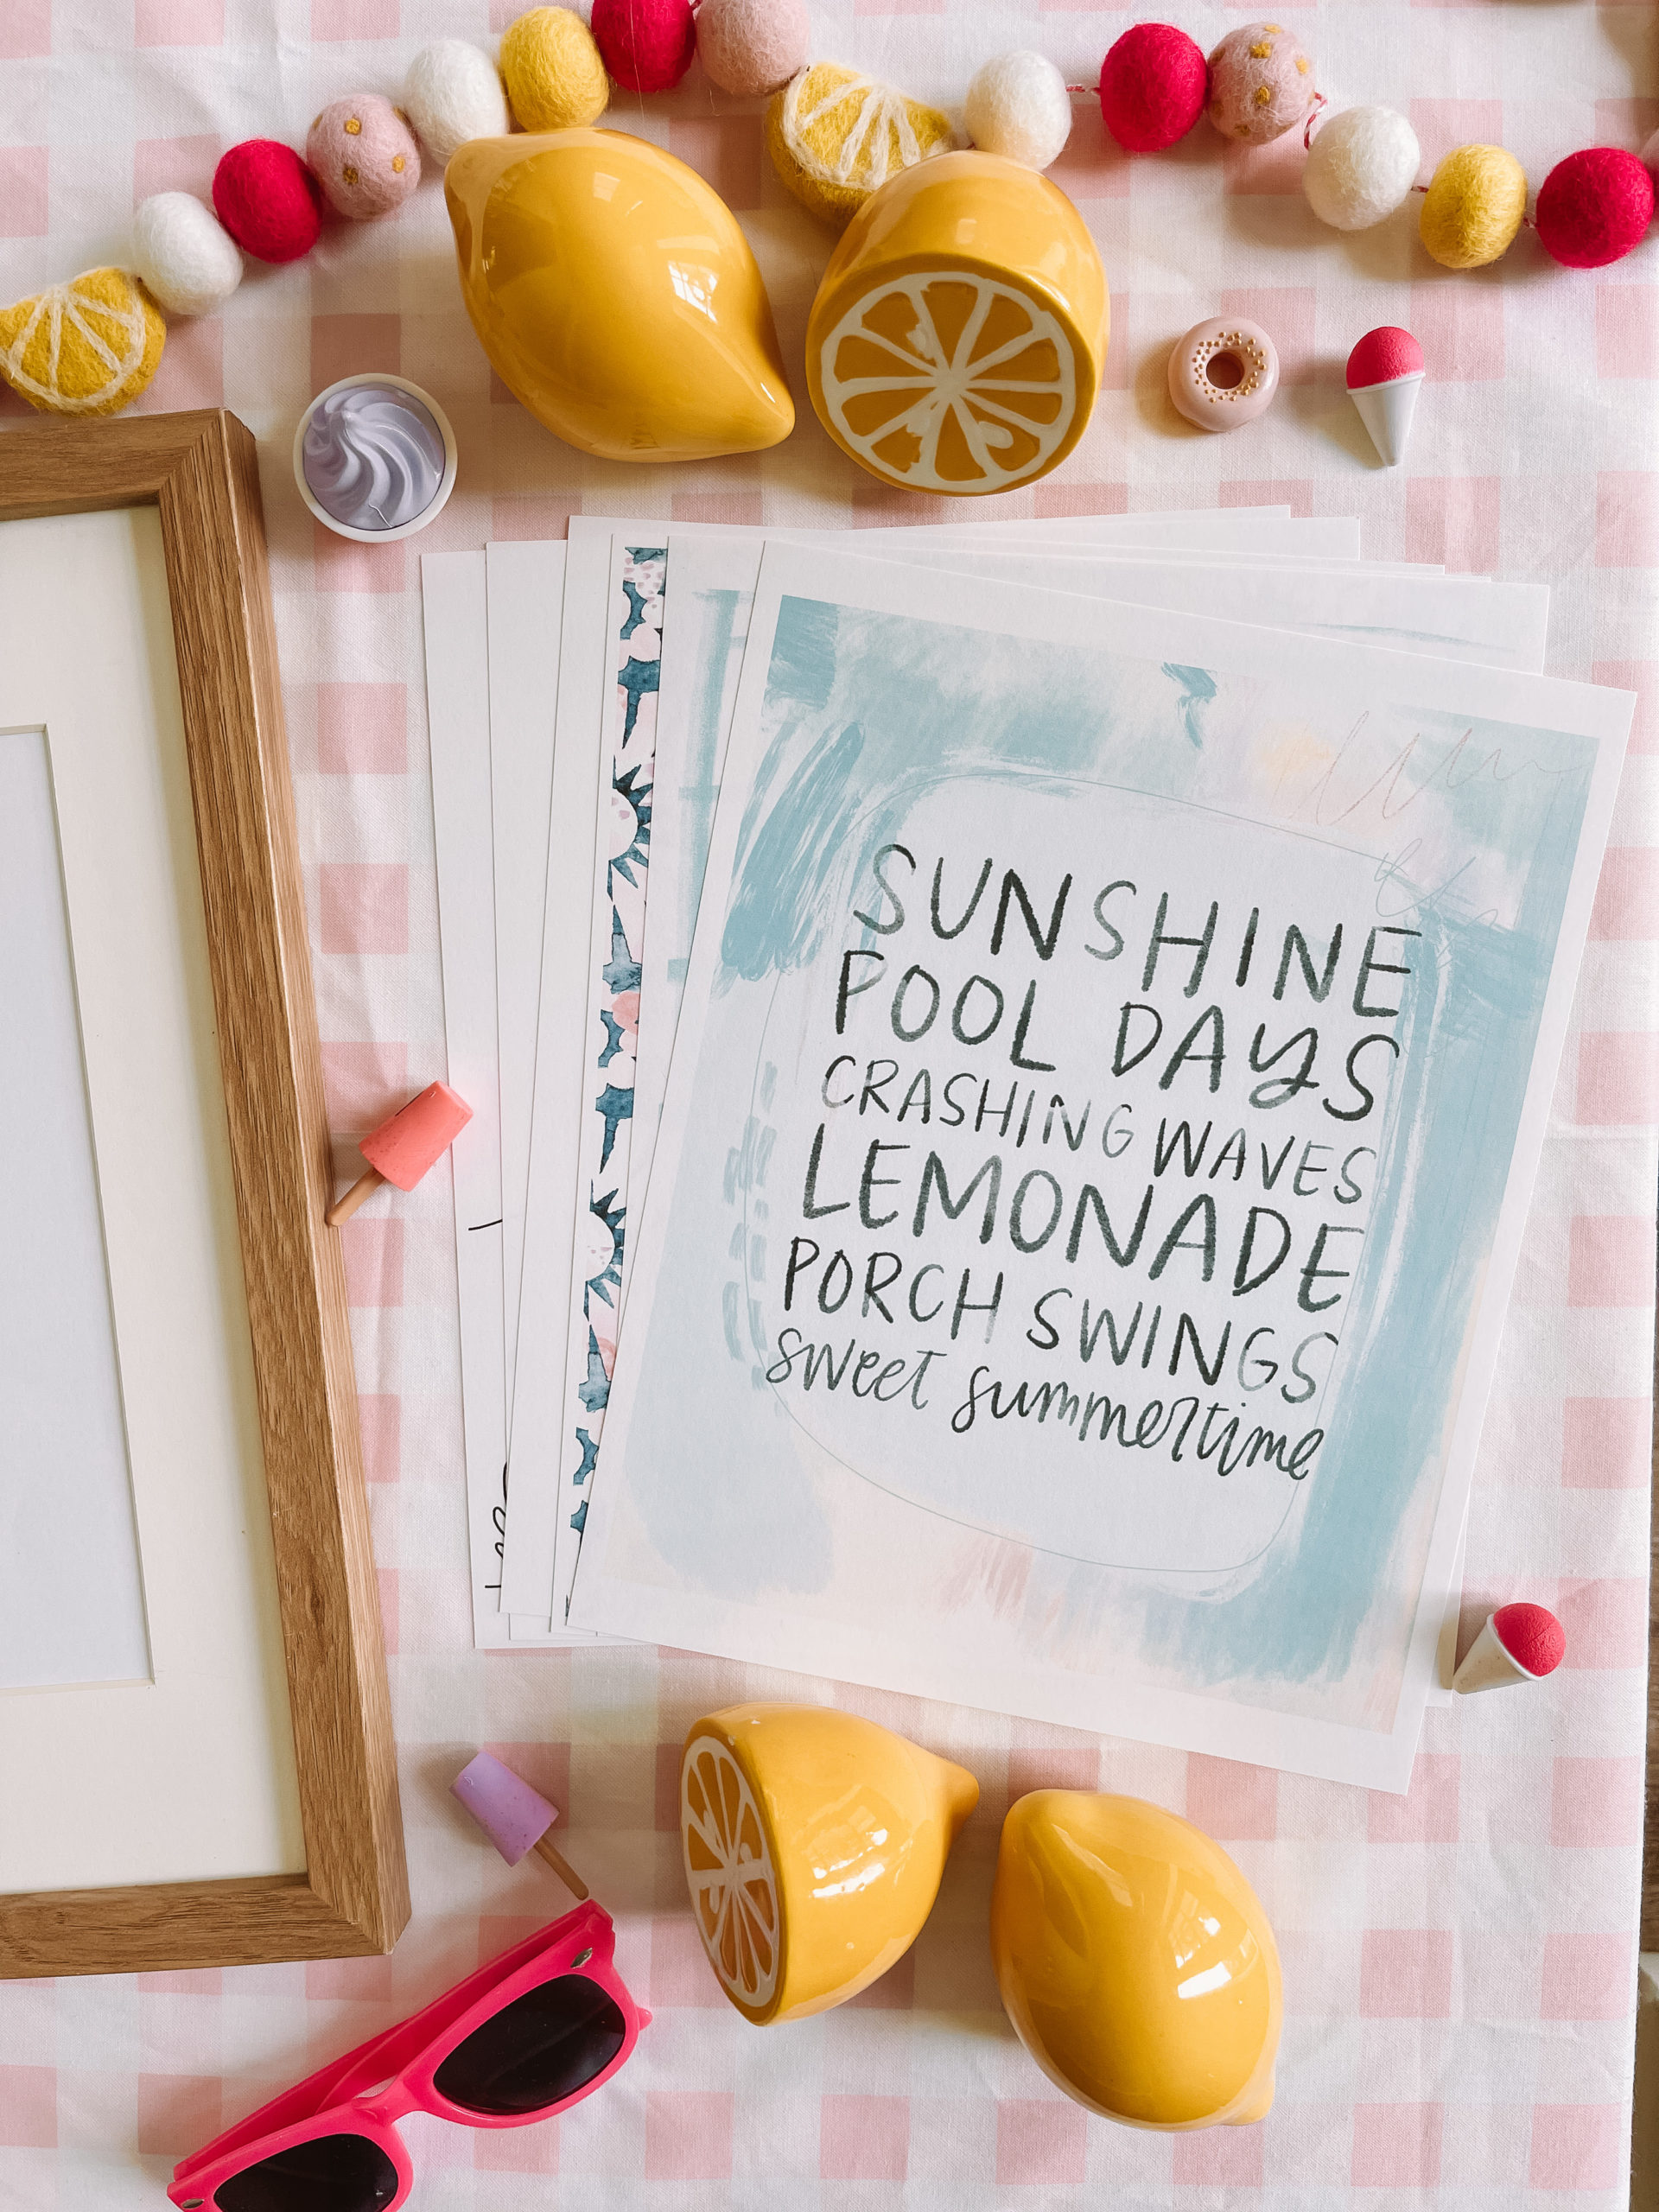 SUNSHINE
POOL DAYS
CRASHING WAVES
LEMONADE
PORCH SWINGS
sweet summertime